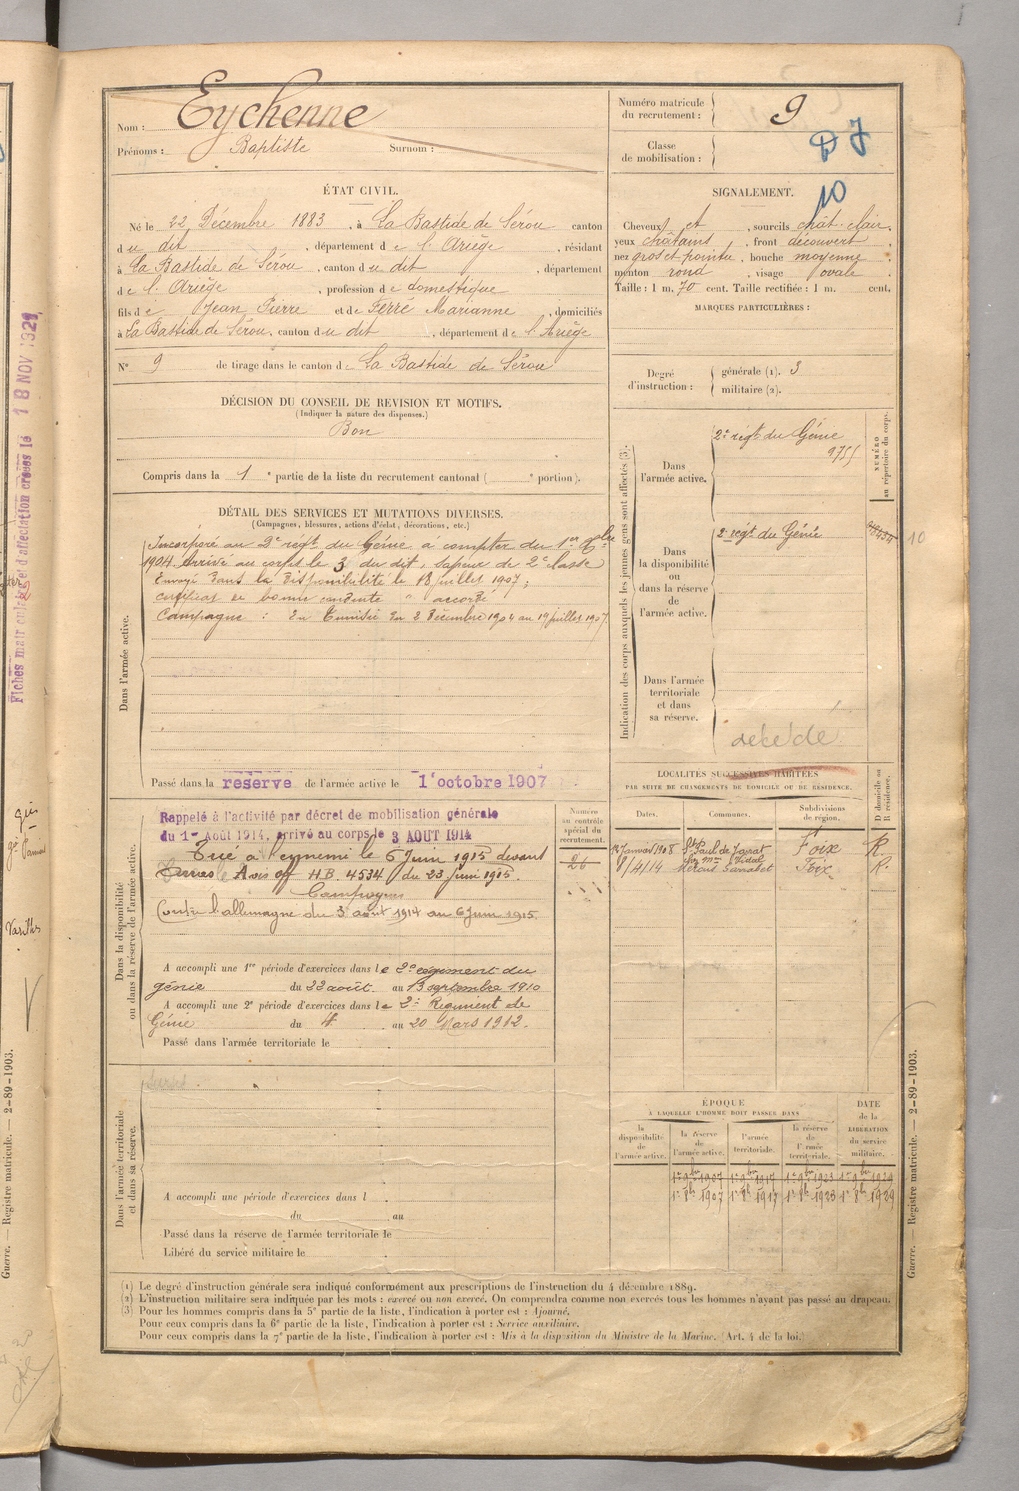 Nom : Eychenne
Prénoms : Baptiste Surnom :
Numéro matricule du recrutement : 9
Classe de mobilisation :
D J
10
ÉTAT CIVIL.
Né le 22 Décembre 1883, à La Bastide de Sérou canton
du dit, département de l'Ariège, résidant
à La Bastide de Sérou, canton du dit, département
de l'Ariège, profession de domestique
fils de Jean Pierre et de Ferré Marianne, domiciliés
à La Bastide de Sérou, canton du dit, département de l'Ariège
N° 9 de tirage dans le canton de La Bastide de Sérou
SIGNALEMENT.
Cheveux et, sourcils chât. clair,
yeux châtains, front découvert,
nez gros et pointu, bouche moyenne
menton rond, visage ovale
Taille : 1 m. 70 cent. Taille rectifiée : 1 m. cent.
MARQUES PARTICULIÈRES :
Degré d'instruction : générale (1). 3
militaire (2).
DÉCISION DU CONSEIL DE REVISION ET MOTIFS.
(Indiquer la nature des dispenses.)
Bon
Compris dans la 1e partie de la liste du recrutement cantonal ( e portion).
DÉTAIL DES SERVICES ET MUTATIONS DIVERSES.
(Campagnes, blessures, actions d'éclat, décorations, etc.)
Dans l'armée active.
Incorporé au 2e régt. du Génie à compter du 1er 8bre
1904. Arrivé au corps le 3 du dit, sapeur de 2e classe
Envoyé dans la disponibilité le 18 juillet 1907 ;
certificat de bonne conduite " accordé
Campagne : En Tunisie du 2 Décembre 1904 au 17 juillet 1907.
Passé dans la réserve de l'armée active le 1er octobre 1907
Indication des corps auxquels les jeunes gens sont affectés (3).
NUMÉRO au répertoire du corps.
Dans l'armée active.
2e régt du Génie
9755
Dans la disponibilité ou dans la réserve de l'armée active.
2e régt du Génie
10
Dans l'armée territoriale et dans sa réserve.
décédé
Dans la disponibilité ou dans la réserve de l'armée active.
Rappelé à l'activité par décret de mobilisation générale
du 1er Août 1914, arrivé au corps le 3 AOUT 1914
Tué à le 6 Juin 1915 devant
Avis off H.B. 4534 du 23 juin 1915.
Campagnes
Contre l'allemagne du 3 août 1914 au 6 Juin 1915.
A accompli une 1re période d'exercices dans le 2e régiment du
génie du 22 août au 13 septembre 1910
A accompli une 2e période d'exercices dans le 2e Régiment de
Génie du 4 au 20 Mars 1912.
Passé dans l'armée territoriale le
Numéro au contrôle spécial du recrutement.
26
LOCALITÉS SUCCESSIVES HABITÉES
PAR SUITE DE CHANGEMENTS DE DOMICILE OU DE RÉSIDENCE.
Dates. Communes. Subdivisions de région. D domicile ou R résidence.
12 Janvier 1908 St Paul de Jarrat Foix R.
8/4/14 Mercus Garrabet Foix R.
Dans l'armée territoriale et dans sa réserve.
A accompli une période d'exercices dans l
du au
Passé dans la réserve de l'armée territoriale le
Libéré du service militaire le
ÉPOQUE
À LAQUELLE L'HOMME DOIT PASSER DANS
la disponibilité de l'armée active.
la réserve de l'armée active.
l'armée territoriale.
la réserve de l'armée territoriale.
DATE de la LIBÉRATION du service militaire.
1er 9bre 1907 1er 9bre 1917 1er 9bre 1923 1er 9bre 1929
1er 8b. 1907 1er 8b. 1917 1er 8b. 1923 1er 8b. 1929
(1) Le degré d'instruction générale sera indiqué conformément aux prescriptions de l'instruction du 4 décembre 1889.
(2) L'instruction militaire sera indiquée par les mots : exercé ou non exercé. On comprendra comme non exercés tous les hommes n'ayant pas passé au drapeau.
(3) Pour les hommes compris dans la 5e partie de la liste, l'indication à porter est : Ajourné.
Pour ceux compris dans la 6e partie de la liste, l'indication à porter est : Service auxiliaire.
Pour ceux compris dans la 7e partie de la liste, l'indication à porter est : Mis à la disposition du Ministre de la Marine. (Art. 4 de la loi.)
Guerre. — Registre matricule. — 2-89-1903.
Guerre. — Registre matricule. — 2-89-1903.
18 NOV 1929